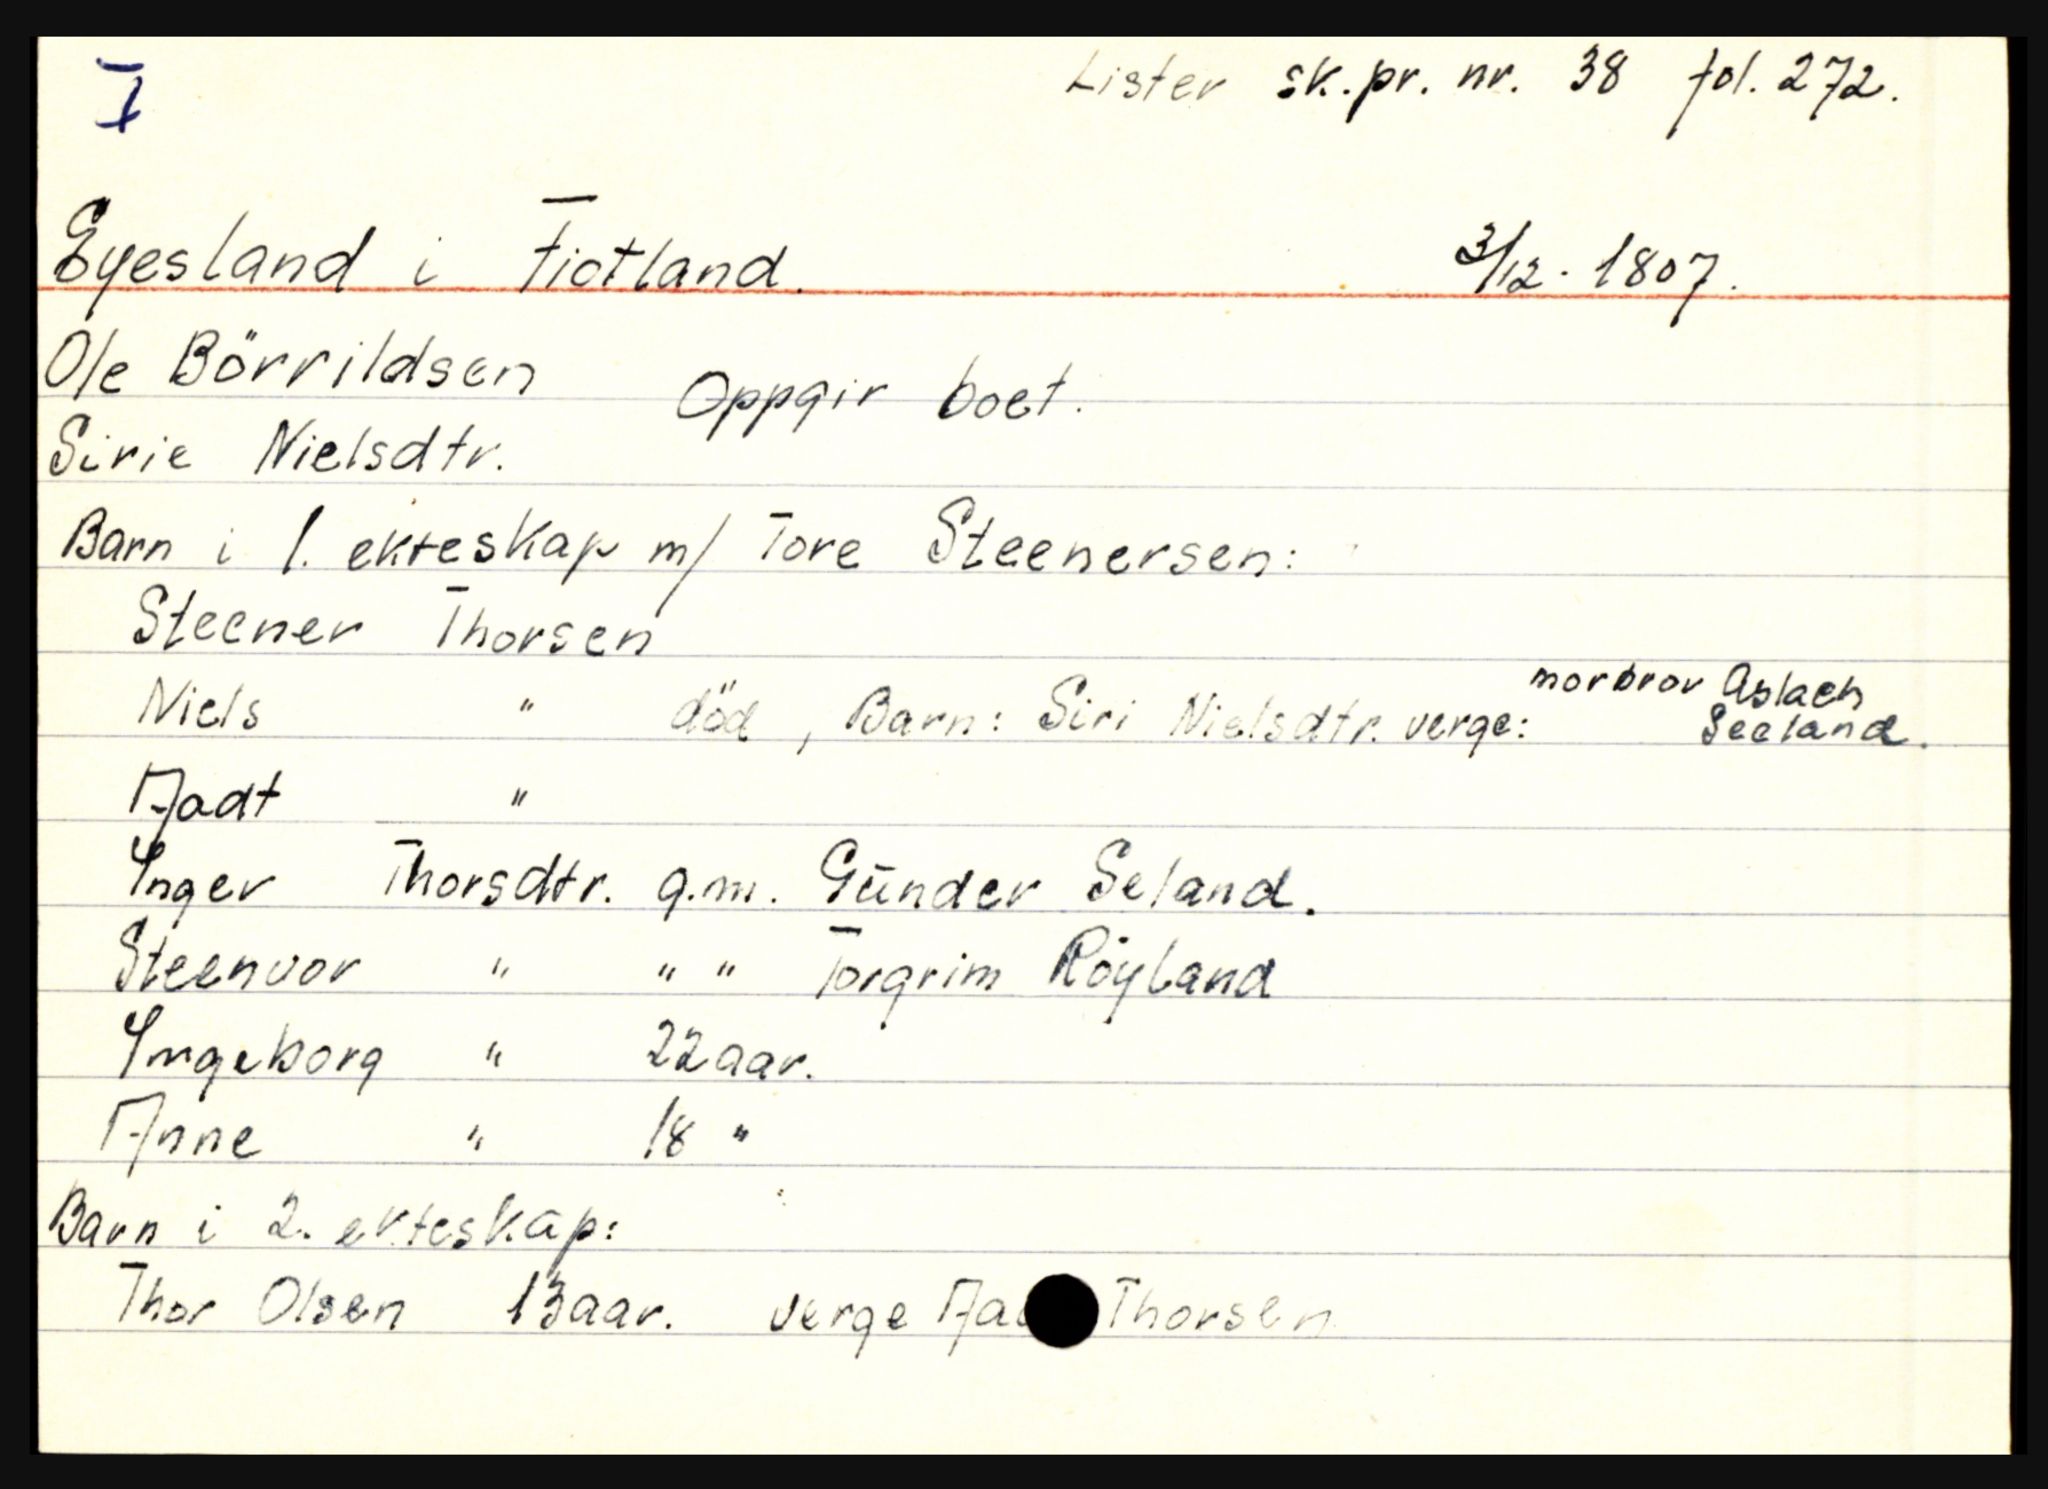 I
Lister sk.pr. nr. 38 fol. 272.
Eyesland i Fiotland. 3/12. 1807.
Ole Börrildsen Oppgir boet.
Sirie Nielsdtr.
Barn i 1. ekteskap m/ Tore Steenersen:
Steener Thorsen
Niels " död, Barn: Siri Nielsdtr. verge: morbror Aslach Seeland.
Aadt "
Inger Thorsdtr. g.m. Günder Seland.
Steenvor " " " Torgrim Röyland
Ingeborg " 22 aar.
Anne " 18 "
Barn i 2. ekteskap:
Thor Olsen 13 aar. verge Thorsen